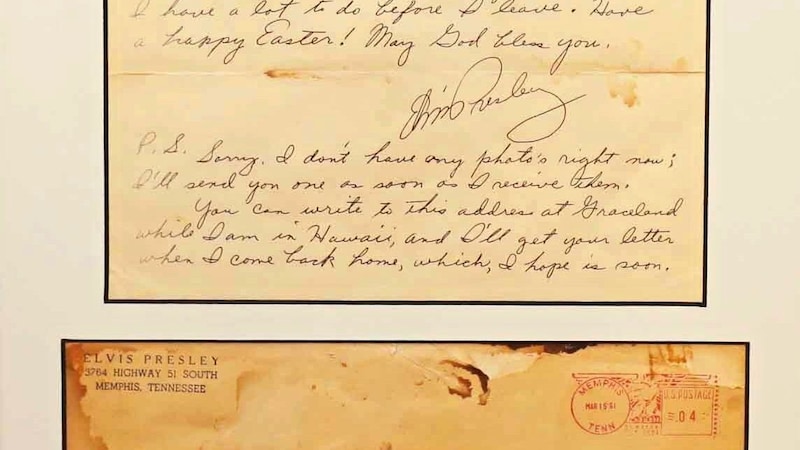 I have a lot to do before I leave. Have
a happy Easter! May God bless you.
Presley
P. S. Sorry, I don't have any photo's right now;
I'll send you one as soon as I receive them.
You can write to this address at Graceland
while I am in Hawaii, and I'll get your letter
when I come back home, which, I hope is soon.
ELVIS PRESLEY
3764 HIGHWAY 51 SOUTH
MEMPHIS, TENNESSEE
MEMPHIS
MAR 15 '61
TENN
U.S. POSTAGE
.04